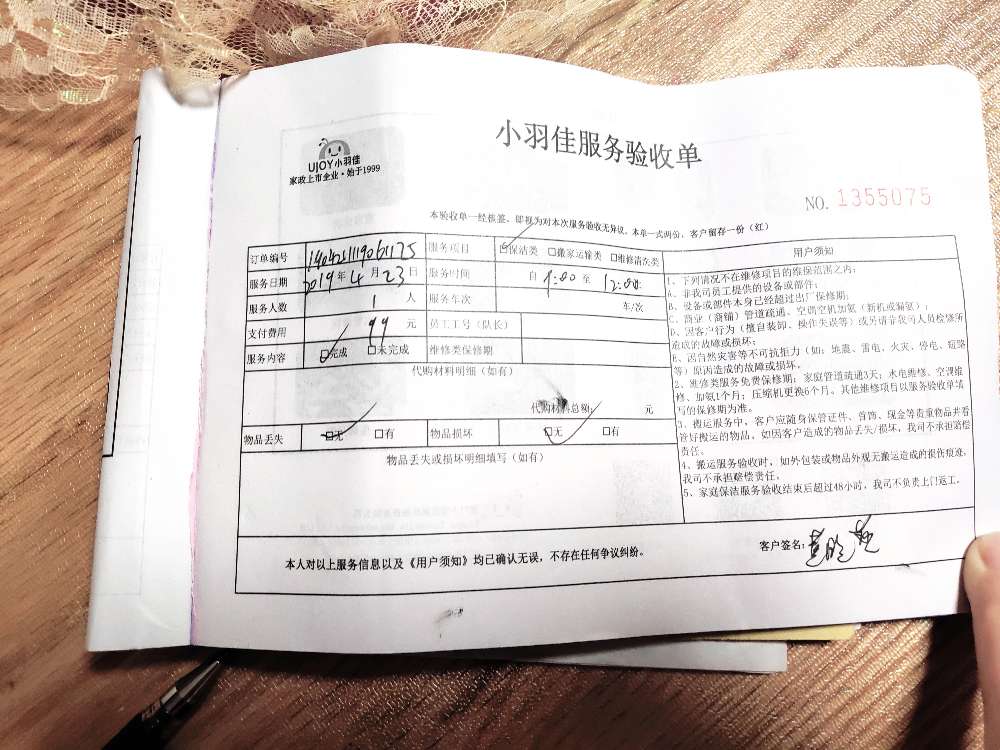 小羽佳服务验收单
UJOY小羽佳
家政上市企业·始于1999
NO. 1355075
本验收单一经核签，即视为对本次服务验收无异议。本单一式两份，客户留存一份（红）
订单编号 服务项目 保洁类 搬家运输类 维修清洗类
服务日期 2019年4月23日 服务时间 自 9:00 至 12:00
服务人数 1 人 服务车次 车/次
支付费用 99 元 员工工号（队长）
服务内容 完成 未完成 维修类保修期
代购材料明细（如有）
代购材料总额： 元
物品丢失 无 有 物品损坏 无 有
物品丢失或损坏明细填写（如有）
用户须知
1、下列情况不在维修项目的维保范围之内：
A、非我司员工提供的设备或部件；
B、设备或部件本身已经超过出厂保修期；
C、商业（商铺）管道疏通、空调空机加氨（新机或漏氨）；
D、因客户行为（擅自装卸、操作失误等）或另请非我司人员检修所
造成的故障或损坏；
E、因自然灾害等不可抗拒力（如：地震、雷电、火灾、停电、短路
等）原因造成的故障或损坏。
2、维修类服务免费保修期：家庭管道疏通3天；水电维修、空调维
修、加氨1个月；压缩机更换6个月。其他维修项目以服务验收单填
写的保修期为准。
3、搬运服务中，客户应随身保管证件、首饰、现金等贵重物品并看
管好搬运的物品。如因客户造成的物品丢失/损坏，我司不承担赔偿
责任。
4、搬运服务验收时，如外包装或物品外观无搬运造成的损伤痕迹，
我司不承担赔偿责任。
5、家庭保洁服务验收结束后超过48小时，我司不负责上门返工。
本人对以上服务信息以及《用户须知》均已确认无误，不存在任何争议纠纷。
客户签名：